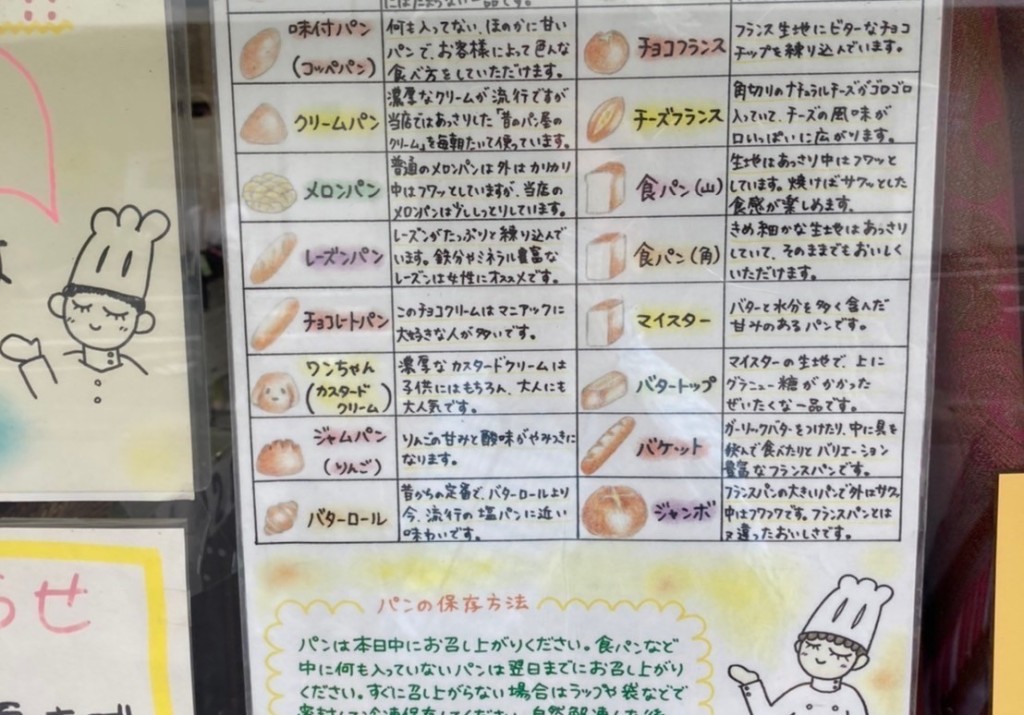 味付パン
(コッペパン)
何も入ってない、ほのかに甘い
パンで、お客様によって色んな
食べ方をしていただけます。
チョコフランス
フランス生地にビターなチョコ
チップを練り込んでいます。
クリームパン
濃厚なクリームが流行ですが
当店ではあっさりした「昔のパン屋の
クリーム」を毎朝たいて使っています。
チーズフランス
角切りのナチュラルチーズがゴロゴロ
入っていて、チーズの風味が
口いっぱいに広がります。
メロンパン
普通のメロンパンは外はカリカリ
中はフワッとしていますが、当店の
メロンパンは少ししっとりしています。
食パン(山)
生地はあっさり中はフワッと
しています。焼けばサクッとした
食感が楽しめます。
レーズンパン
レーズンがたっぷりと練り込んで
います。鉄分やミネラル豊富な
レーズンは女性にオススメです。
食パン(角)
きめ細かな生地はあっさり
していて、そのままでもおいしく
いただけます。
チョコレートパン
このチョコクリームはマニアックに
大好きな人が多いです。
マイスター
バターと水分を多く含んだ
甘みのあるパンです。
ワンちゃん
(カスタード
クリーム)
濃厚なカスタードクリームは
子供にはもちろん、大人にも
大人気です。
バタートップ
マイスターの生地で、上に
グラニュー糖がかかった
ぜいたくな一品です。
ジャムパン
(りんご)
りんごの甘みと酸味がやみつきに
なります。
バケット
ガーリックバターをつけたり、中に具を
挟んで食べたりとバリエーション
豊富なフランスパンです。
バターロール
昔からの定番で、バターロールより
今、流行の塩パンに近い
味わいです。
ジャンボ
フランスパンの大きいパンで外はサクッ
中はフワフワです。フランスパンとは
又違ったおいしさです。
パンの保存方法
パンは本日中にお召し上がりください。食パンなど
中に何も入っていないパンは翌日までにお召し上がり
ください。すぐに召し上がらない場合はラップや袋などで
らせ